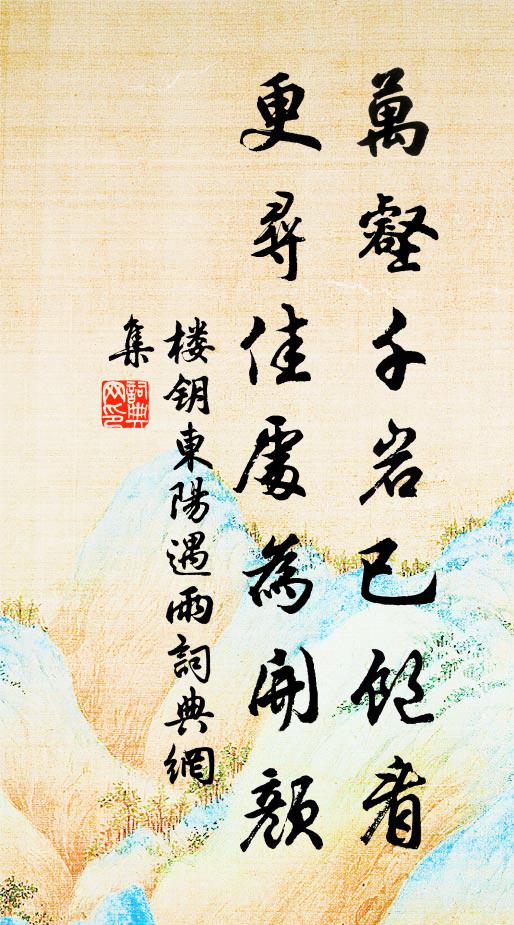 萬壑千岩已飽看
更尋佳處為開顏
楼钥東陽遇雨詞典網
集
詞典
网印